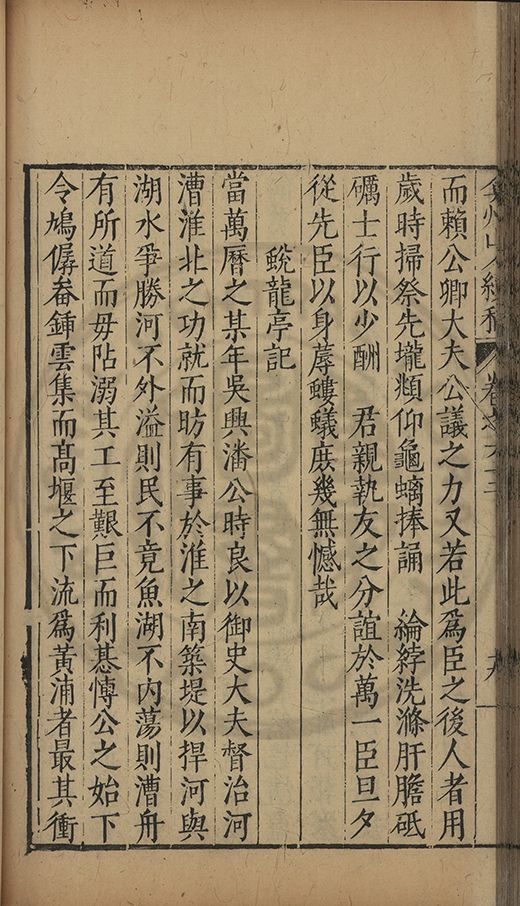 而賴公卿大夫公議之力又若此爲臣之後人者用
歲時掃祭先壠頫仰龜螭捧誦　綸綍洗滌肝膽砥
礪士行以少酬　君親執友之分誼於萬一臣旦夕
從先臣以身蓐螻蟻庶幾無憾哉
蛻龍亭記
當萬曆之某年吳興潘公時良以御史大夫督治河
漕淮北之功就而昉有事於淮之南築堤以捍河與
湖水爭勝河不外溢則民不竟魚湖不内蕩則漕舟
有所道而毋阽溺其工至艱巨而利惎慱公之始下
令鳩孱畚鍤雲集而髙堰之下流爲黃浦者最其衝